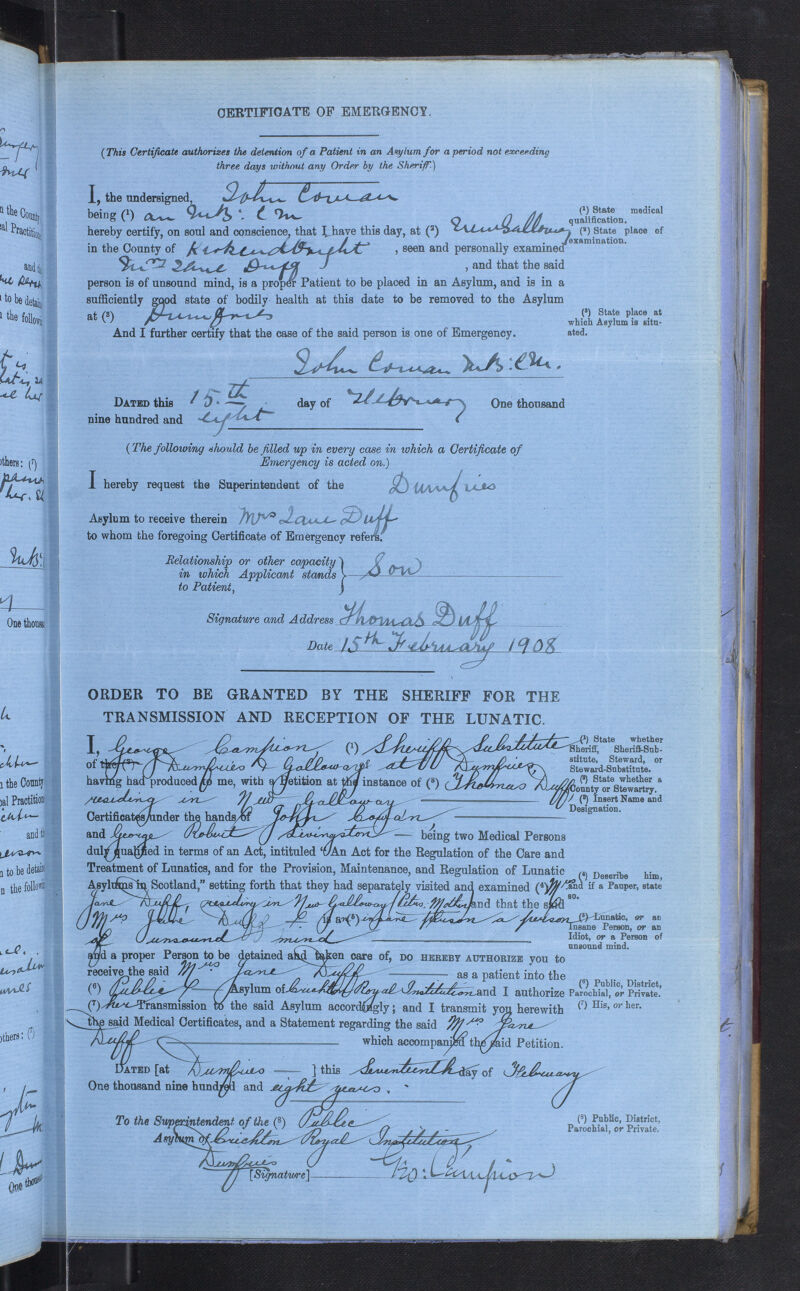 CERTIFICATE OF EMERGENCY.
(This Certificate authorizes the detention of a Patient in an Asylum for a period not exceeding
three days without any Order by the Sheriff.)
I, the undersigned, John Cowan
being (1) an M.B: C M
hereby certify, on soul and conscience, that I have this day, at (2) New Galloway
in the County of Kirkcudbright , seen and personally examined
Mrs Jane Duff , and that the said
person is of unsound mind, is a proper Patient to be placed in an Asylum, and is in a
sufficiently good state of bodily health at this date to be removed to the Asylum
at (3) Dumfries
And I further certify that the case of the said person is one of Emergency.
John Cowan M.B: C.M.
DATED this 15.th day of February One thousand
nine hundred and eight
(1) State medical
qualification.
(2) State place of
examination.
(3) State place at
which Asylum is situ-
ated.
(The following should be filled up in every case in which a Certificate of
Emergency is acted on.)
I hereby request the Superintendent of the Dumfries
Asylum to receive therein Mrs Jane Duff
to whom the foregoing Certificate of Emergency refers.
Relationship or other capacity
in which Applicant stands
to Patient, } Son
Signature and Address Thomas Duff
Date 15th February 1908
ORDER TO BE GRANTED BY THE SHERIFF FOR THE
TRANSMISSION AND RECEPTION OF THE LUNATIC.
I, George Campion, (1) Sheriff Substitute
of the (2) Dumfries & Galloway at Dumfries,
having had produced to me, with a Petition at the instance of (3) Thomas Duff,
residing in New Galloway
Certificates under the hands of John Cowan,
and George Robert Livingston — being two Medical Persons
duly qualified in terms of an Act, intituled "An Act for the Regulation of the Care and
Treatment of Lunatics, and for the Provision, Maintenance, and Regulation of Lunatic
Asylums in Scotland," setting forth that they had separately visited and examined (4) Mrs
Jane Duff, residing in New Galloway, Petrs. Mother and that the said
Mrs Jane Duff is a (5) insane person a person
of unsound mind
and a proper Person to be detained and taken care of, DO HEREBY AUTHORIZE you to
receive the said Mrs Jane Duff — as a patient into the
(6) Public Asylum of Crichton Royal Institution and I authorize
(7) her Transmission to the said Asylum accordingly; and I transmit you herewith
the said Medical Certificates, and a Statement regarding the said Mrs Jane
Duff which accompanied the said Petition.
DATED [at Dumfries — ] this Seventeenth day of February
One thousand nine hundred and eight years.
To the Superintendent of the (8) Public
Asylum of Crichton Royal Institution,
Dumfries
[Signature] Geo: Campion
(1) State whether
Sheriff, Sheriff-Sub-
stitute, Steward, or
Steward-Substitute.
(2) State whether a
County or Stewartry.
(3) Insert Name and
Designation.
(4) Describe him,
and if a Pauper, state
so.
(5) Lunatic, or an
Insane Person, or an
Idiot, or a Person of
unsound mind.
(6) Public, District,
Parochial, or Private.
(7) His, or her.
(8) Public, District,
Parochial, or Private.